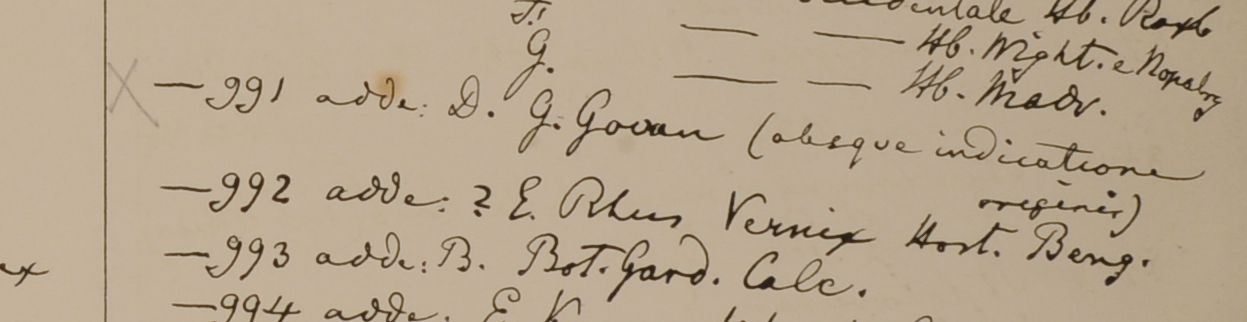 F. — — Hb. Roxb
G. — — Hb. Wight. e
— — Hb. Madr.
—991 adde: D. G. Govan (absque indicatione originis)
—992 adde: ? E. Rhus Vernix Hort. Beng.
—993 adde: B. Bot. Gard. Calc.
—994 adde: E
ex